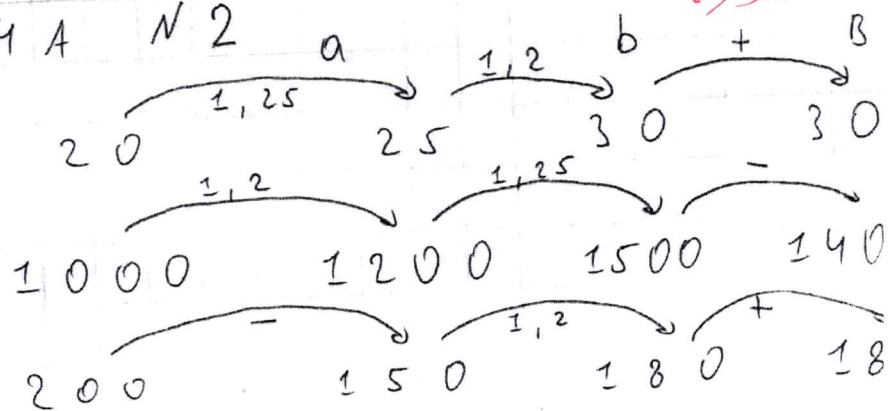 A N 2 a b B
1,25 1,2 +
20 25 30 30
1,2 1,25 -
1000 1200 1500 140
- 1,2 +
200 150 180 18